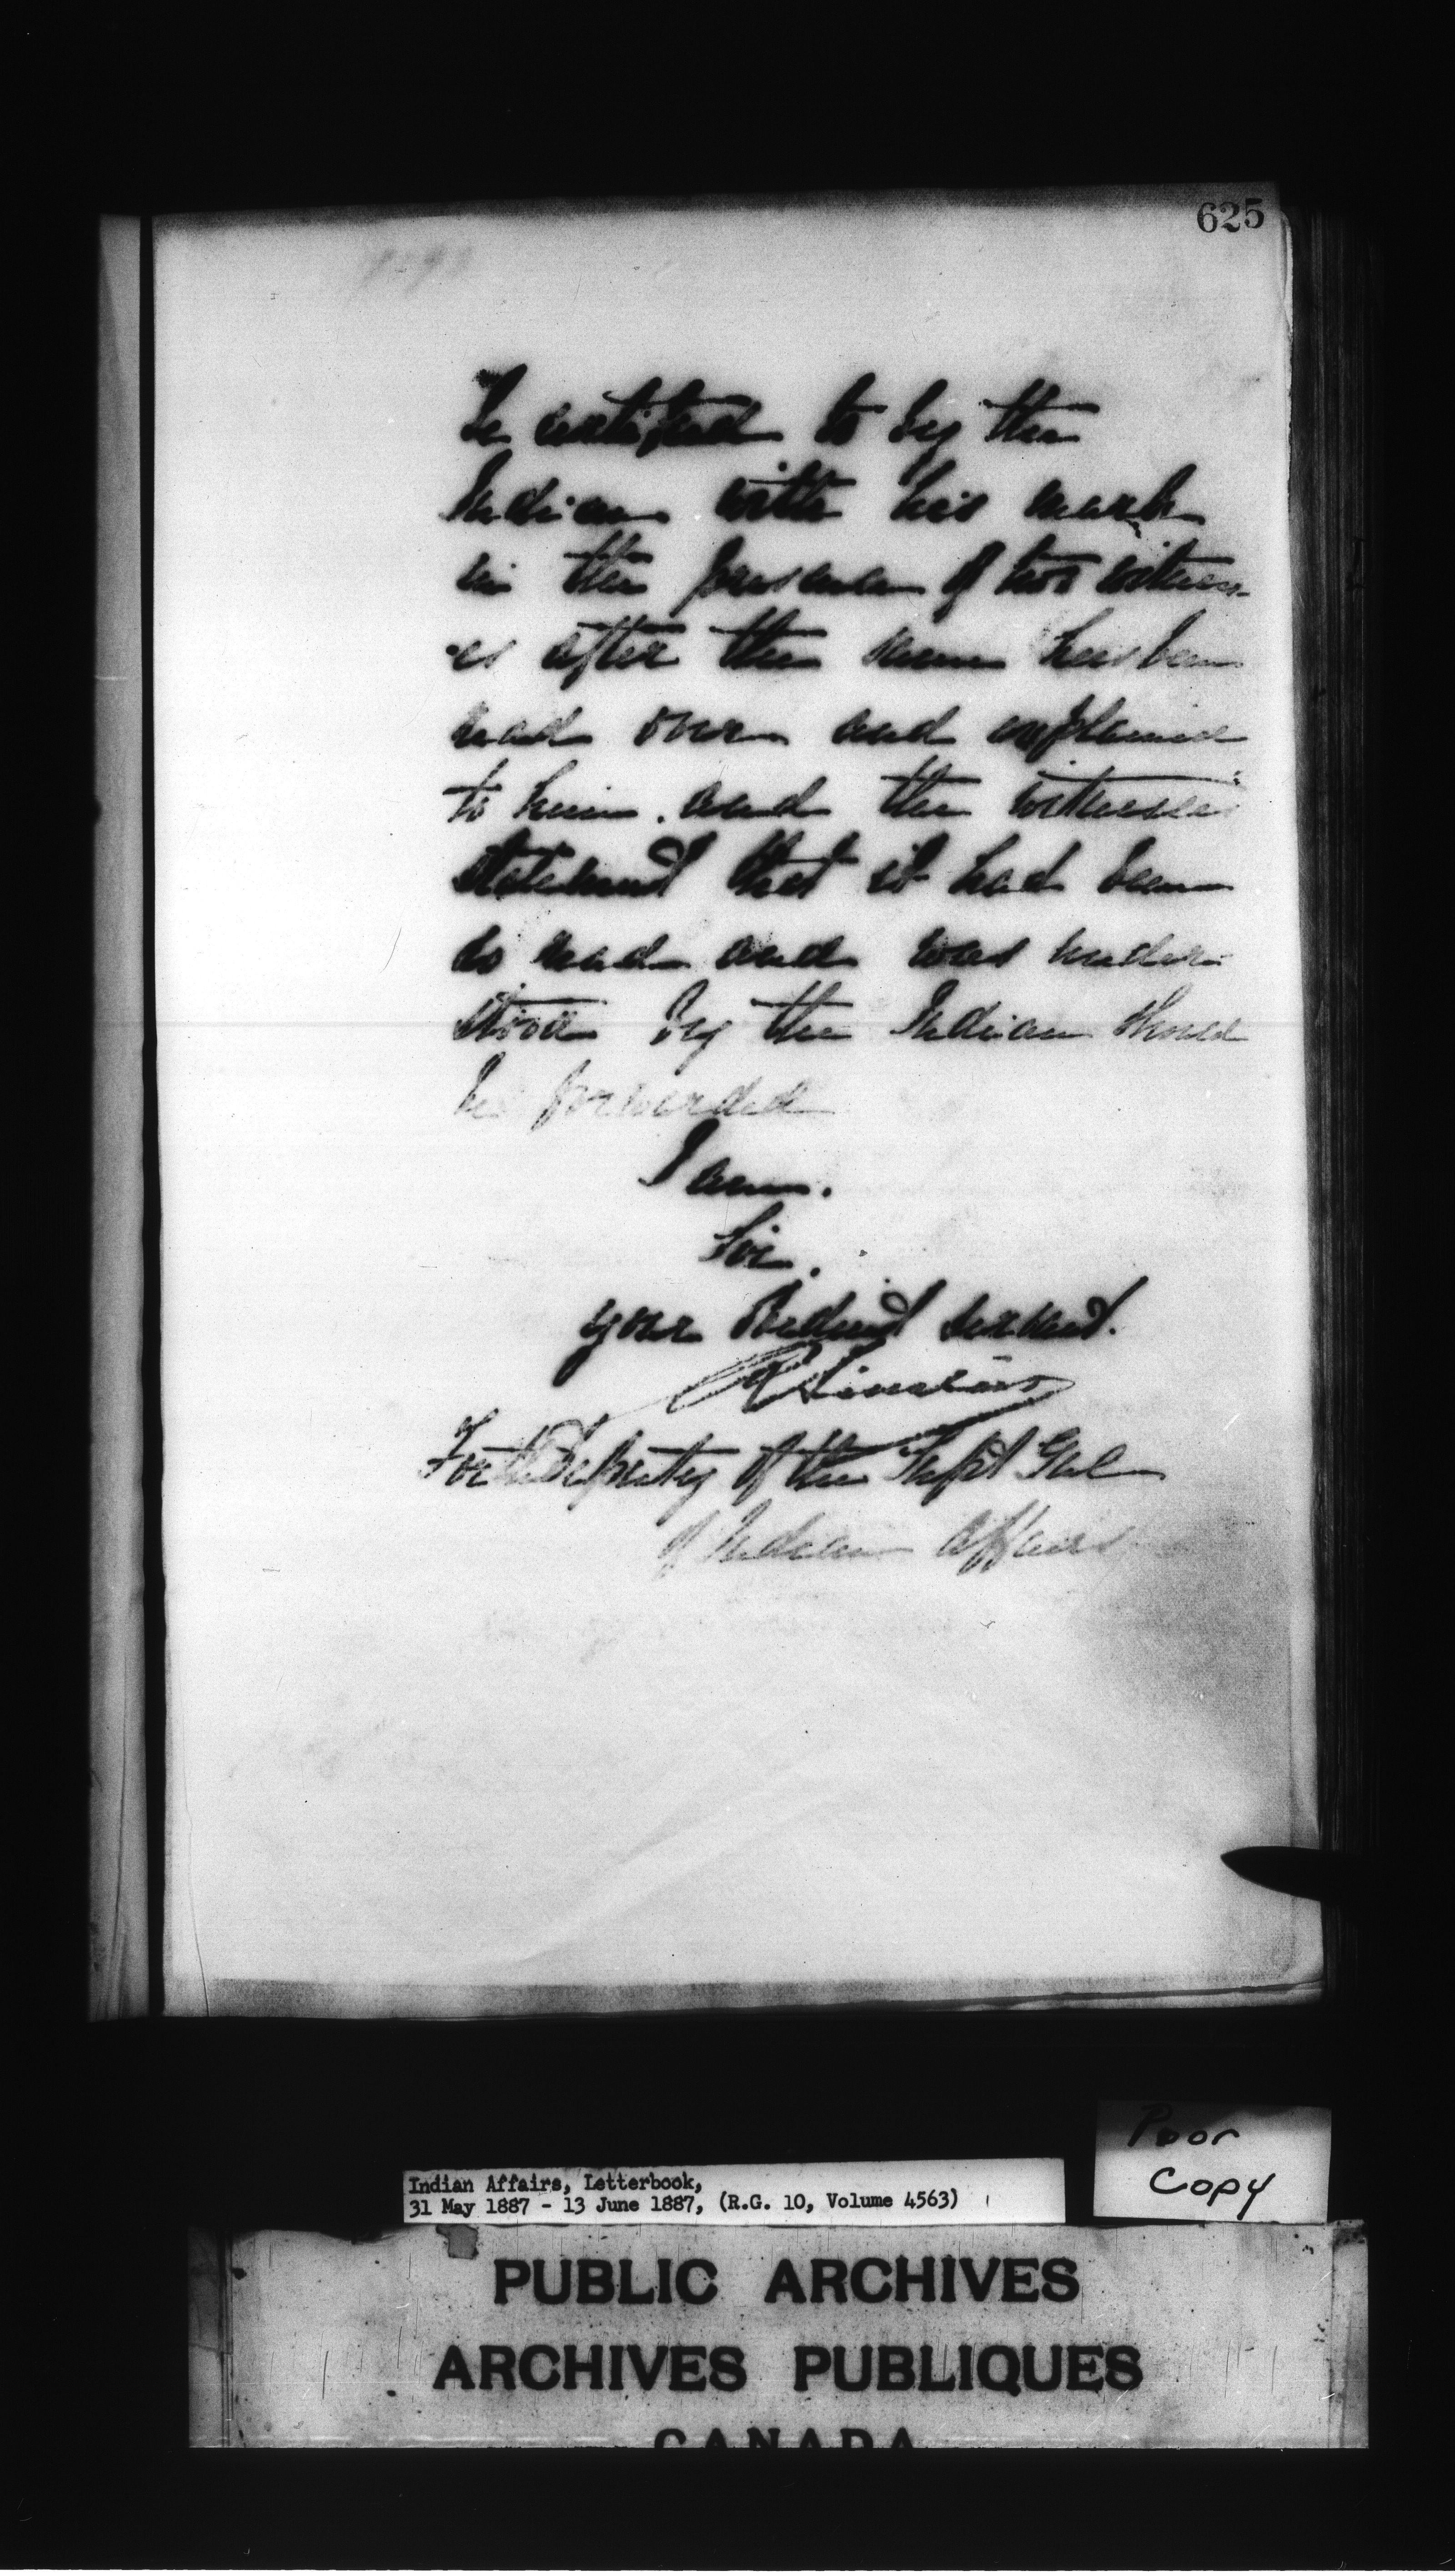 625
be certified to by the
Indian with his mark
in the presence of two witness-
es after the same has been
read over and explained
to him. and the witnesses
statement that it had been
so read and was under-
stood by the Indian should
be forwarded
I am.
Sir.
your obedient servant.
R Sinclair
For the Deputy of the Supt Genl
of Indian Affairs
Poor
Copy
Indian Affairs, Letterbook,
31 May 1887 - 13 June 1887, (R.G. 10, Volume 4563)
PUBLIC ARCHIVES
ARCHIVES PUBLIQUES
CANADA